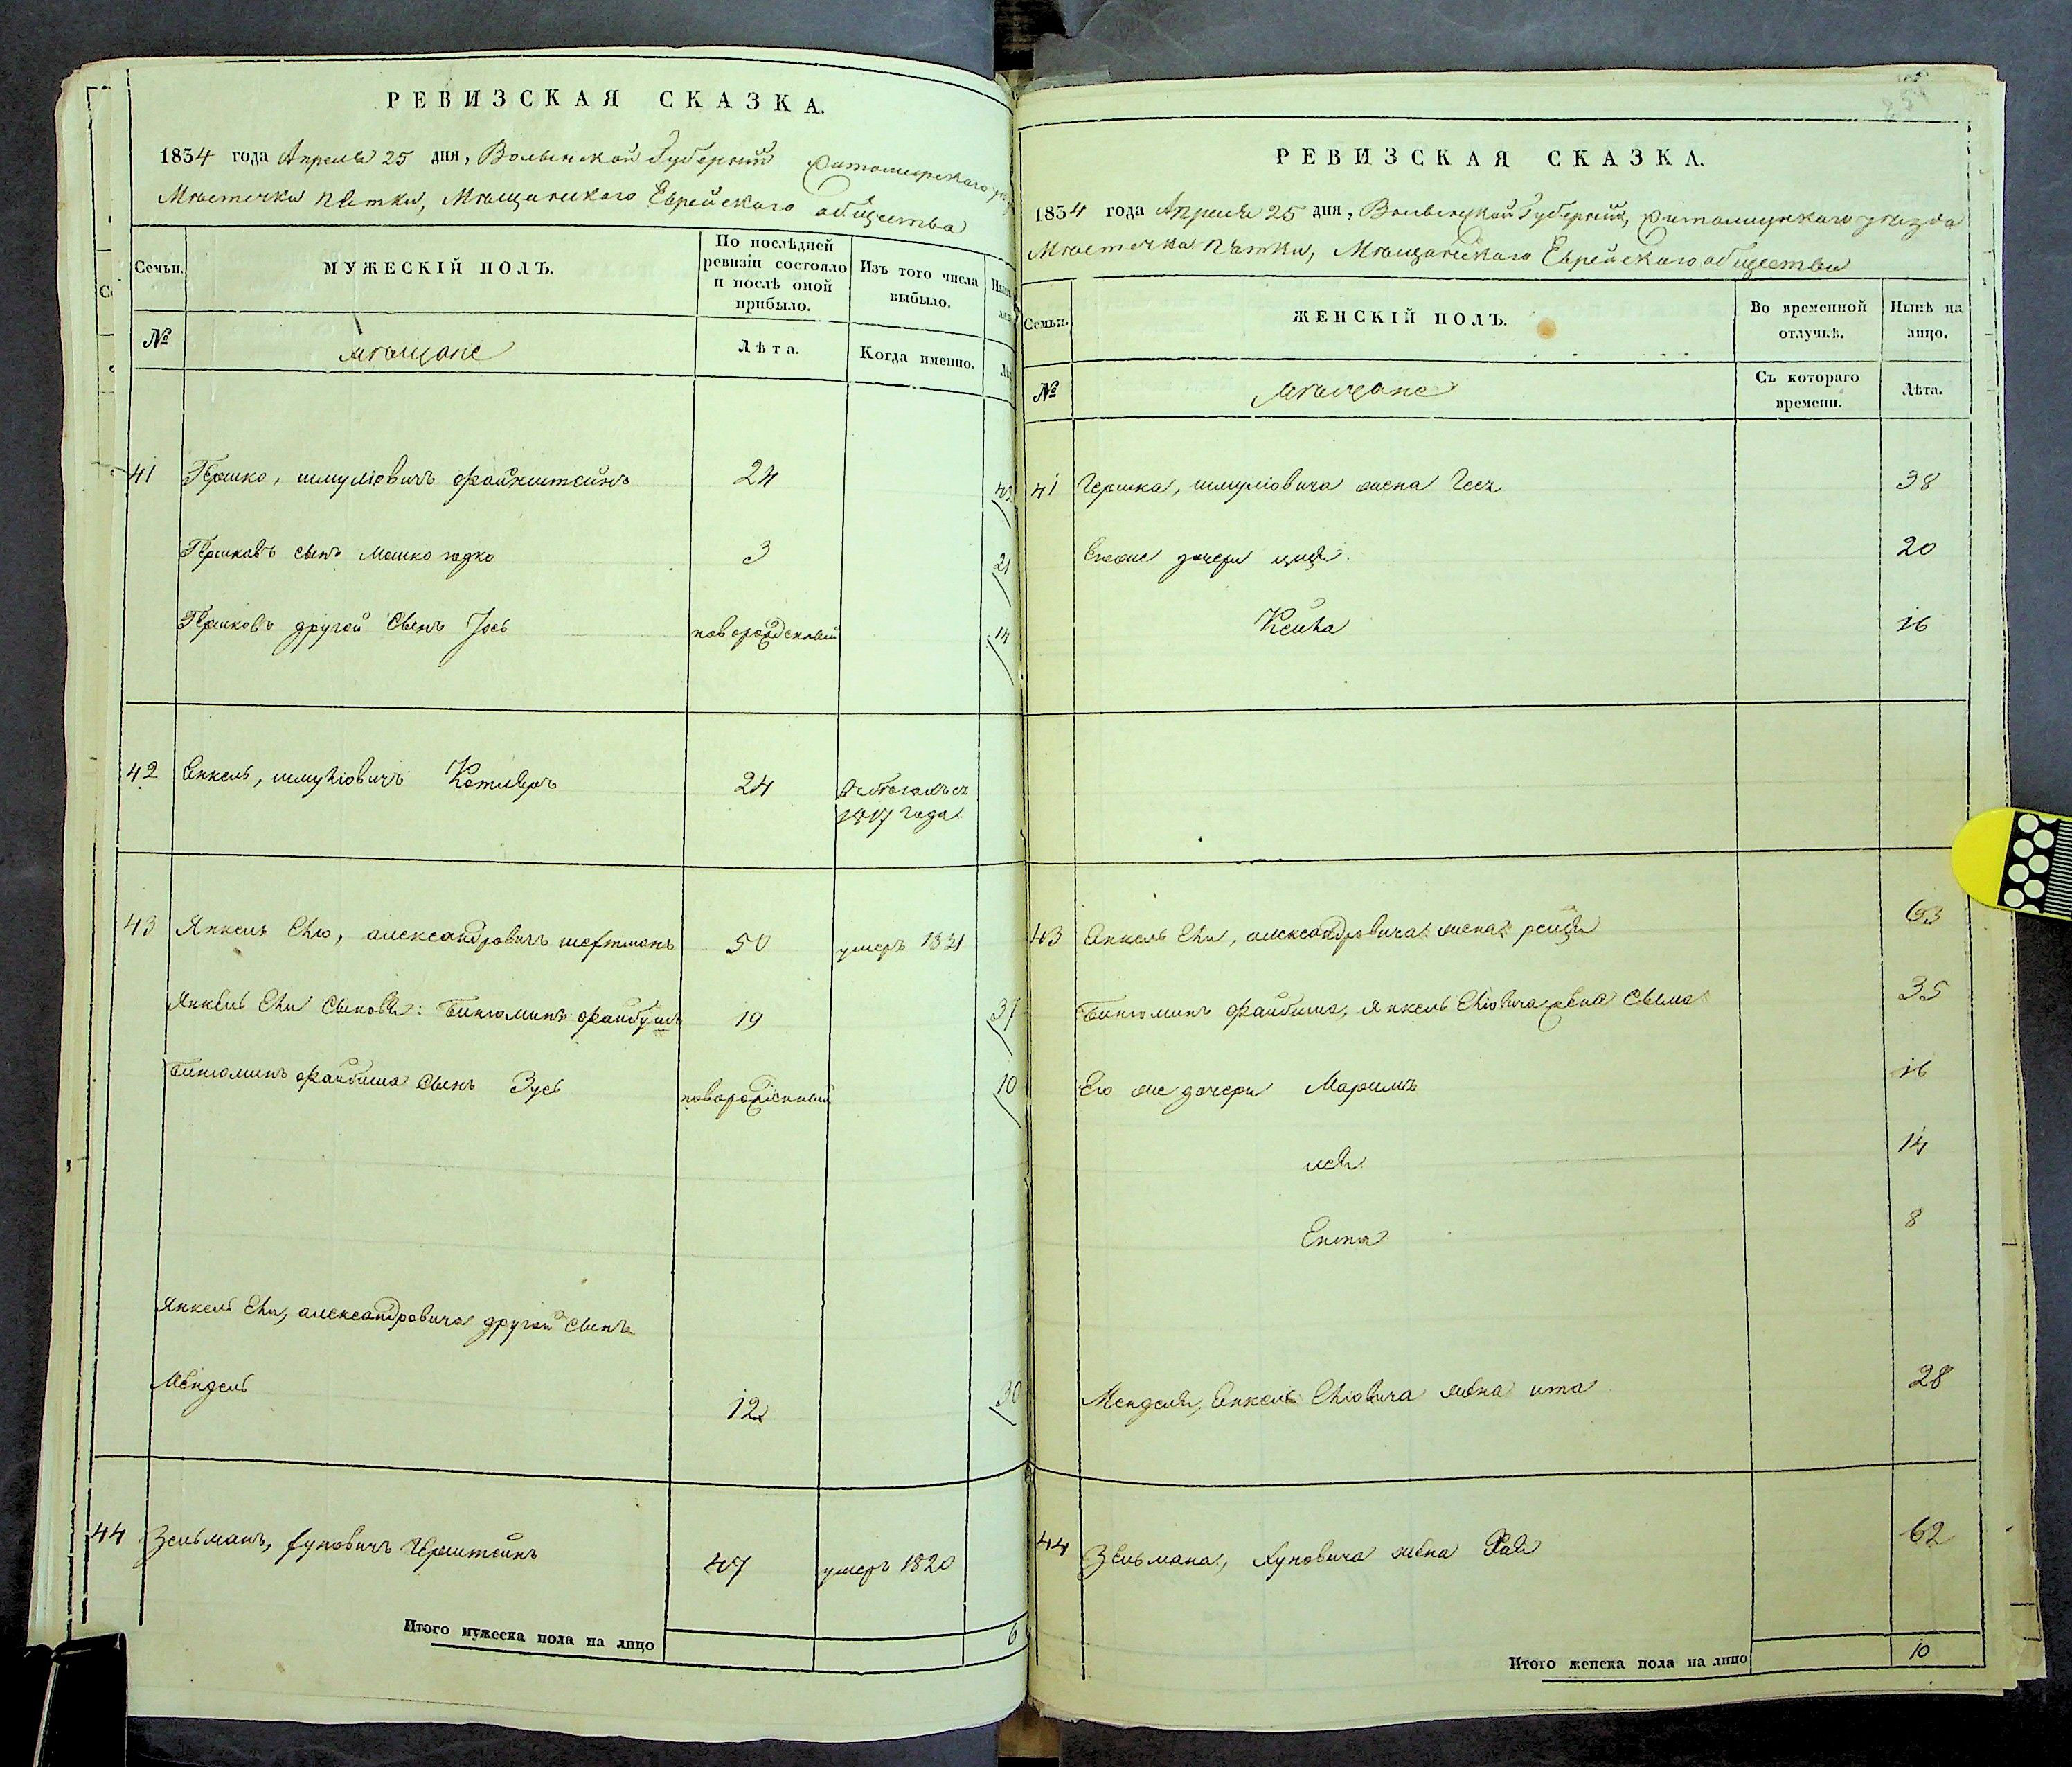 РЕВИЗСКАЯ СКАЗКА.
1834 года Апреля 25 дня, Волынской Губерніи Житомирского
Мѣстечки Пѣтки, Мѣщанского Еврейского общества
Семьи.
МУЖЕСКІЙ ПОЛЪ.
По послѣдней ревизіи состояло и послѣ оной прибыло.
Изъ того числа выбыло.
№
мѣщане
Лѣта.
Когда именно.
41 Гершко, шмуліовичъ файнштейнъ 24 43
Гершковъ сынъ Мошко 3 21
Гершковъ другой Сынъ Іось новорожденный 14
42 Янкель, шмуліовичъ Котляръ 24 1817 года
43 Янкель Елю, александровичъ шефтманъ 50 умеръ 1831
Янкель Еля Сыновя: Биньоминъ файбушъ 19 37
Биньоминъ файбиша Сынъ Зусь новорожденный 10
Янкель Еля, александровича другой Сынъ
Мендель 12 30
44 Зельманъ, Гершштейнъ 47 умеръ 1820
Итого мужеска пола на лицо 6
РЕВИЗСКАЯ СКАЗКА.
1834 года Апреля 25 дня, Волынской Губерніи, Житомирского уѣзда
Мѣстечка Пѣтки, Мѣщанского Еврейского общества
Семьи.
ЖЕНСКІЙ ПОЛЪ.
Во временной отлучкѣ.
Нынѣ на лицо.
№
мѣщане
Съ котораго времени.
Лѣта.
41 Гершка, шмуліовича жена 38
дочери 20
Кейла 16
43 Янкель Еля, александровича жена рейзя 63
Биньоминъ файбиша, Янкель Еліовича жена Сыма 35
Его же дочери Маримъ 16
лея 14
Ента 8
Менделя, Янкель Еліовича жена ита 28
44 Зельмана, жена Хая 62
Итого женска пола на лицо 10